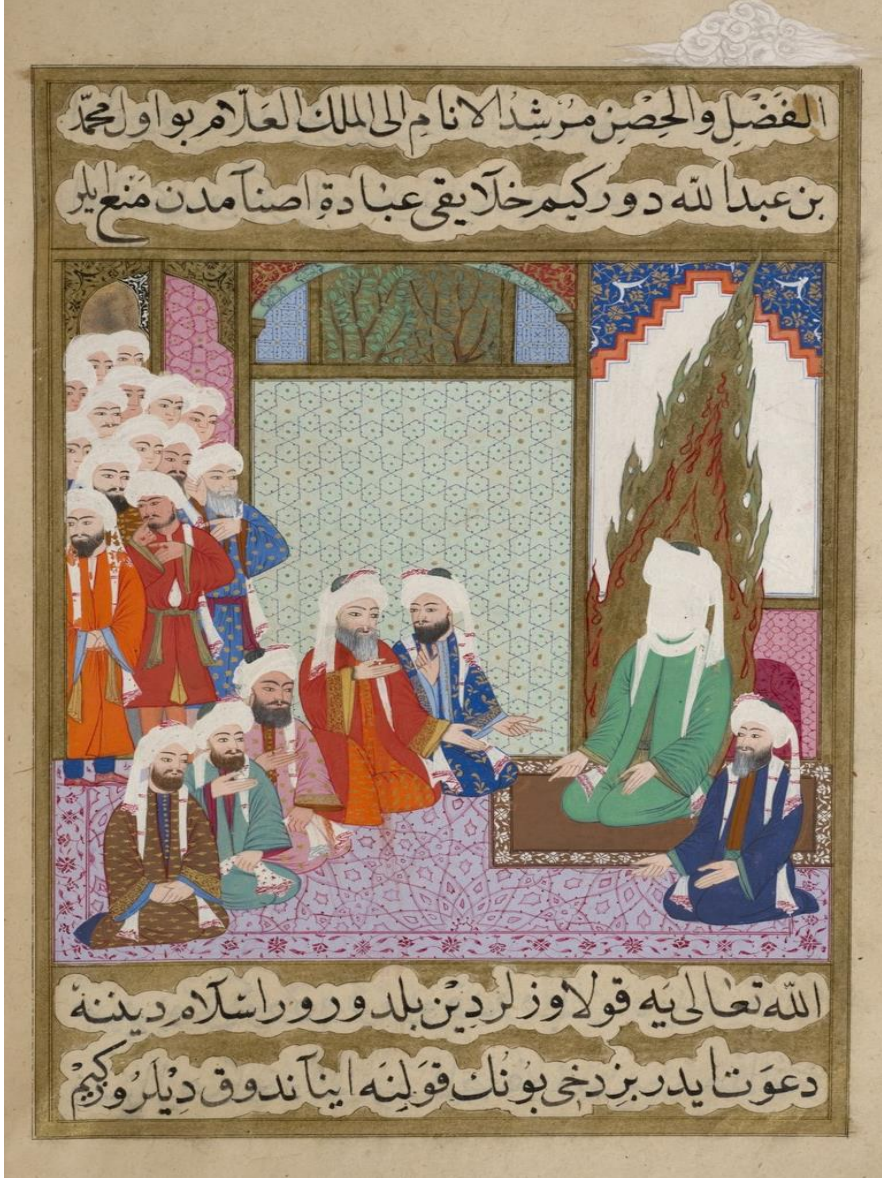 الفَضْلِ والحِصْنِ مُرْشِدُ الانامِ الى الملك العَلّام بو اول محمّد
بن عبد الله دور كيم خلايقى عبادةِ اصنامدن مَنع ايلر
الله تعالى يه قوللوز لردين بلدورور اسلام ديننه
دعوَت ايدر بز دخى بونك قولنه ايناندوق ديلر وكيم